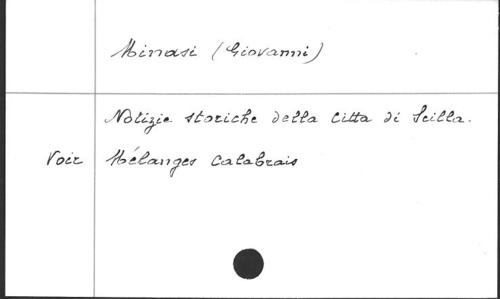 Minasi (Giovanni)
Notizie storiche della citta di Scilla.
Voir Mélanges calabrais